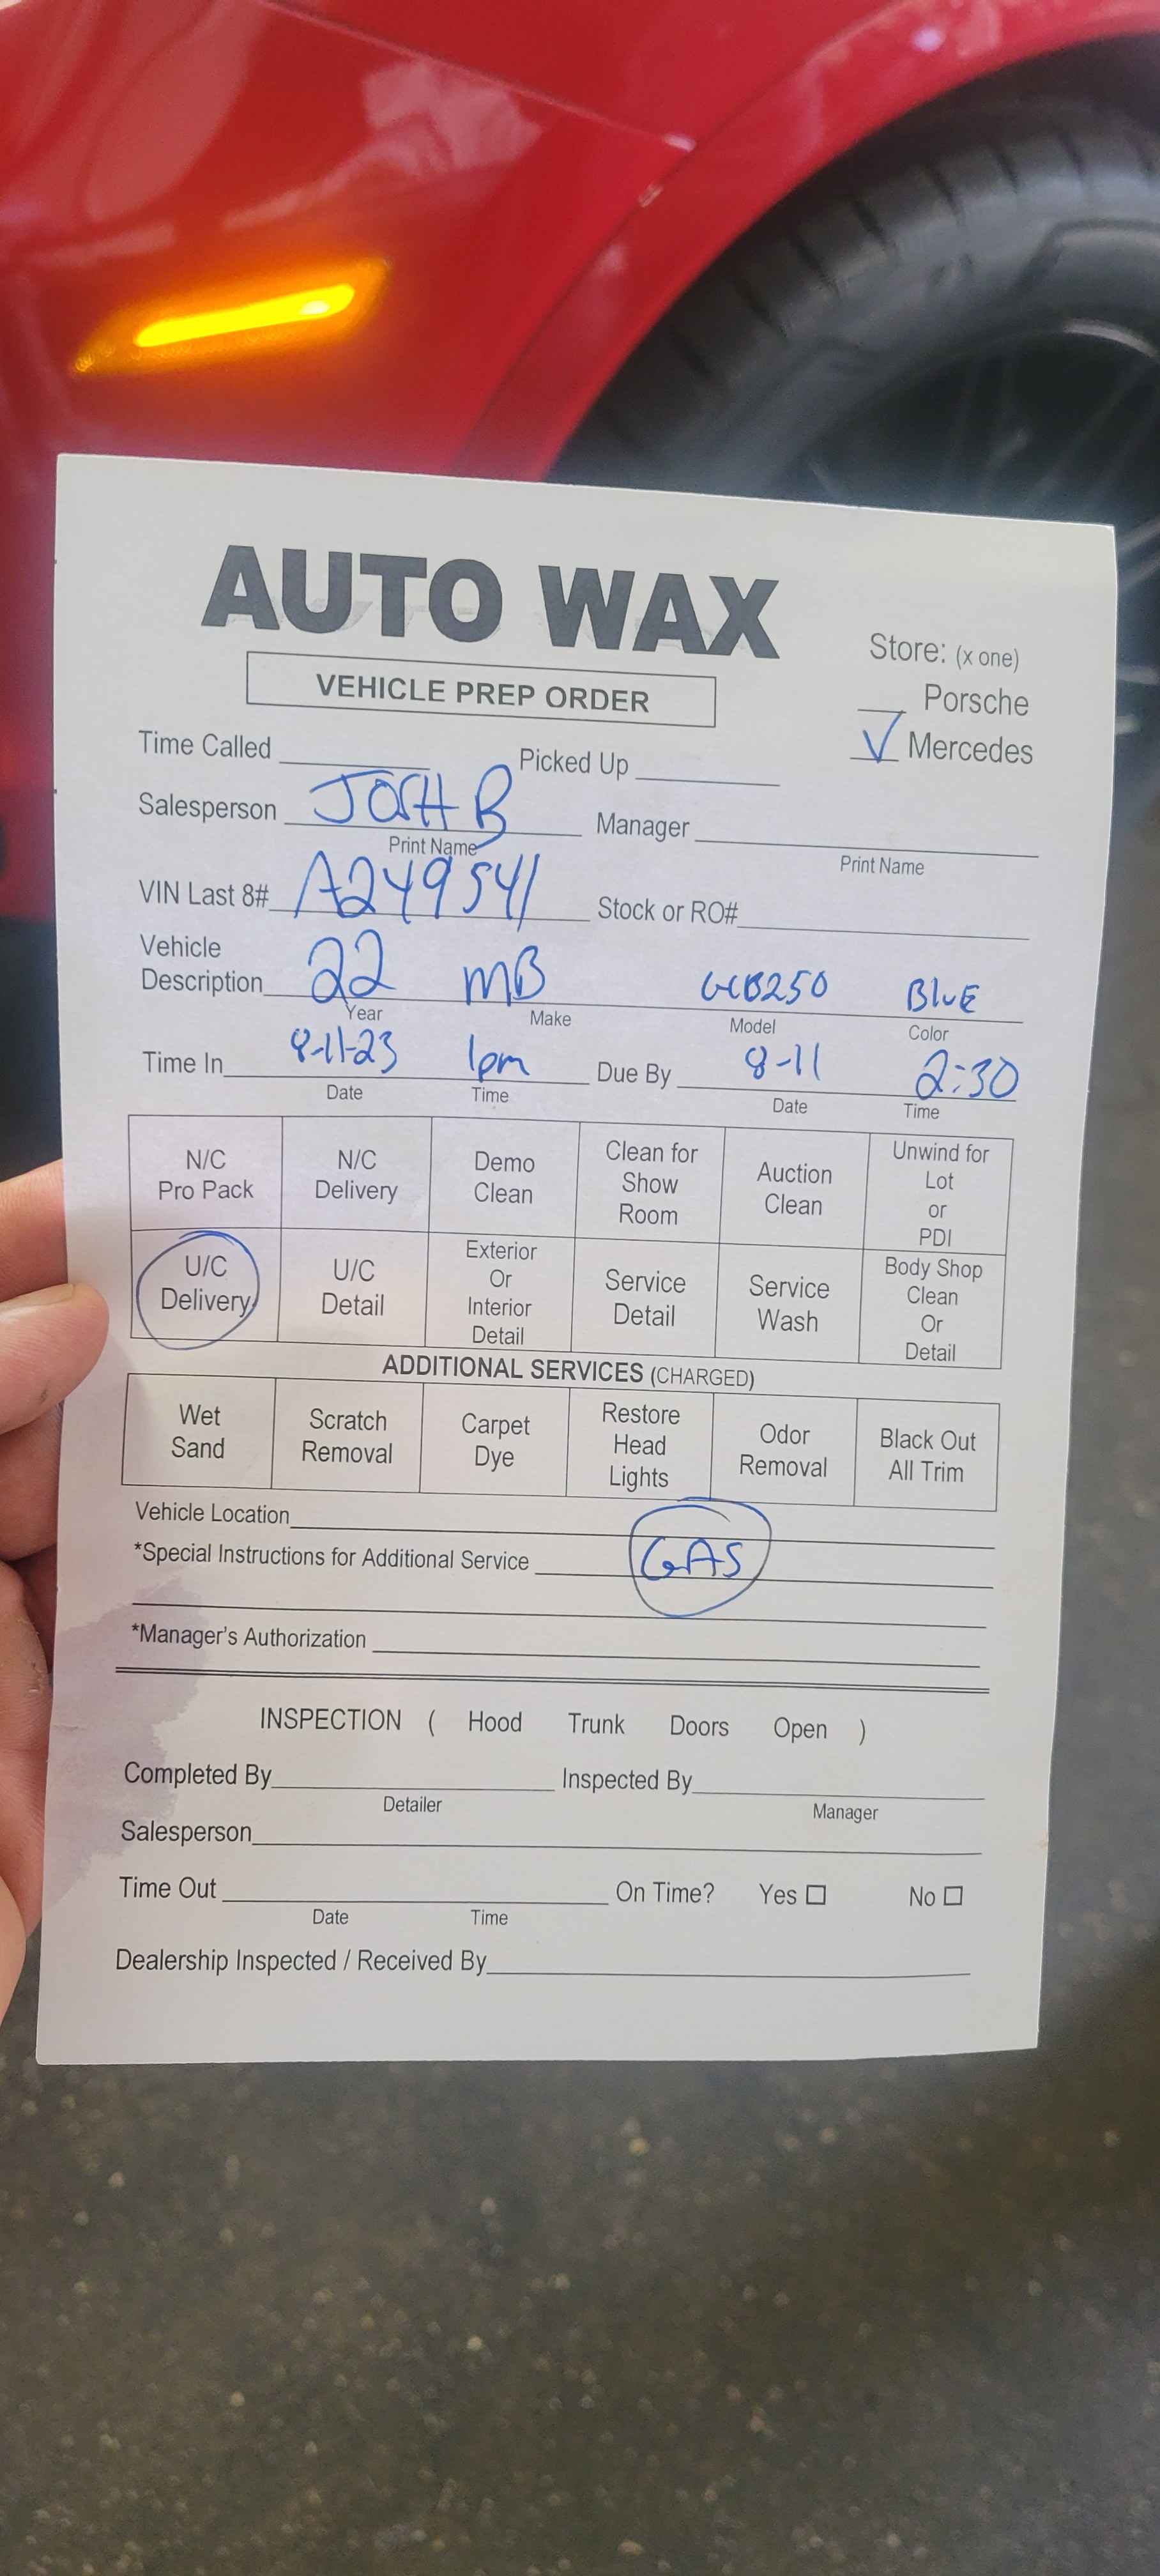 AUTO WAX
VEHICLE PREP ORDER
Store: (x one)
Porsche
√ Mercedes
Time Called Picked Up
Salesperson JOSH B Manager
Print Name Print Name
VIN Last 8# A249541 Stock or RO#
Vehicle
Description 22 MB GLB250 BLUE
Year Make Model Color
Time In 8-11-23 1pm Due By 8-11 2:30
Date Time Date Time
N/C Pro Pack N/C Delivery Demo Clean Clean for Show Room Auction Clean Unwind for Lot or PDI
U/C Delivery U/C Detail Exterior Or Interior Detail Service Detail Service Wash Body Shop Clean Or Detail
ADDITIONAL SERVICES (CHARGED)
Wet Sand Scratch Removal Carpet Dye Restore Head Lights Odor Removal Black Out All Trim
Vehicle Location
*Special Instructions for Additional Service GAS
*Manager's Authorization
INSPECTION ( Hood Trunk Doors Open )
Completed By Inspected By
Detailer Manager
Salesperson
Time Out On Time? Yes □ No □
Date Time
Dealership Inspected / Received By